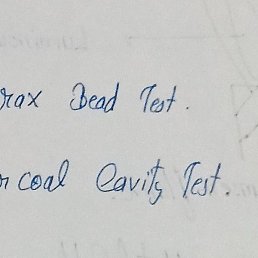 rax Bead Test.
r coal Cavity Test.